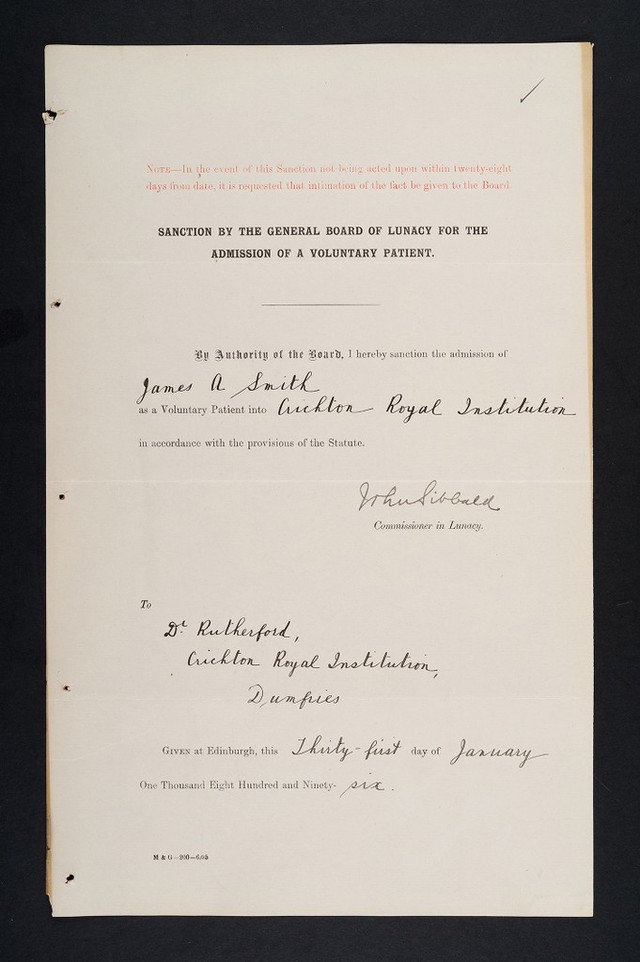 NOTE—In the event of this Sanction not being acted upon within twenty-eight
days from date, it is requested that intimation of the fact be given to the Board.
SANCTION BY THE GENERAL BOARD OF LUNACY FOR THE
ADMISSION OF A VOLUNTARY PATIENT.
By Authority of the Board, I hereby sanction the admission of
James A Smith
as a Voluntary Patient into Crichton Royal Institution
in accordance with the provisions of the Statute.
John Sibbald
Commissioner in Lunacy.
To
Dr Rutherford,
Crichton Royal Institution,
Dumfries
GIVEN at Edinburgh, this Thirty-first day of January
One Thousand Eight Hundred and Ninety-six.
M & G—200—